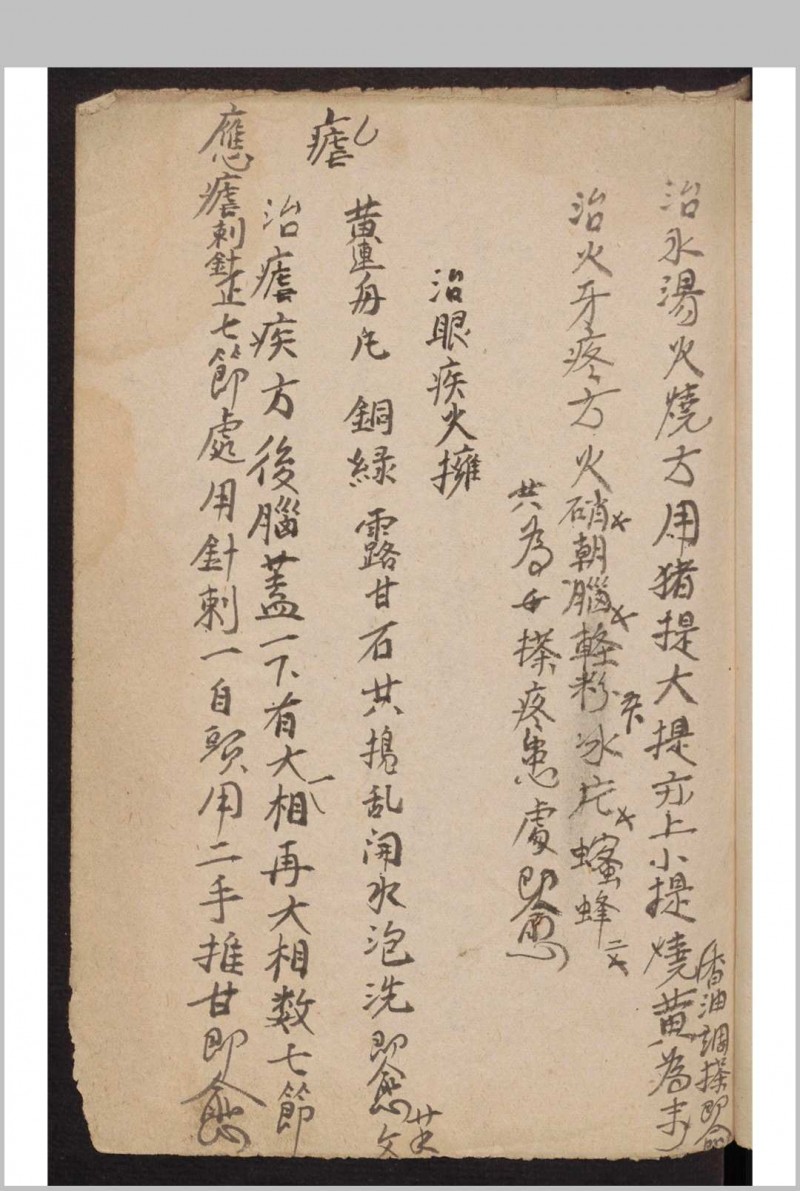 治水湯火燒方用猪提大提方上小提燒黃為末
香油調搽即愈
治火牙疼方火硝朝腦輕粉冰片螞蜂
共為末搽疼患處即愈
治眼疾火擁
黃連舟片 銅綠 露甘石共搗乱開水泡洗即愈
瘧
治瘧疾方後腦蓋一下有大相再大相数七節
應瘧刺針正七節處用針刺一自頭用二手推甘即愈